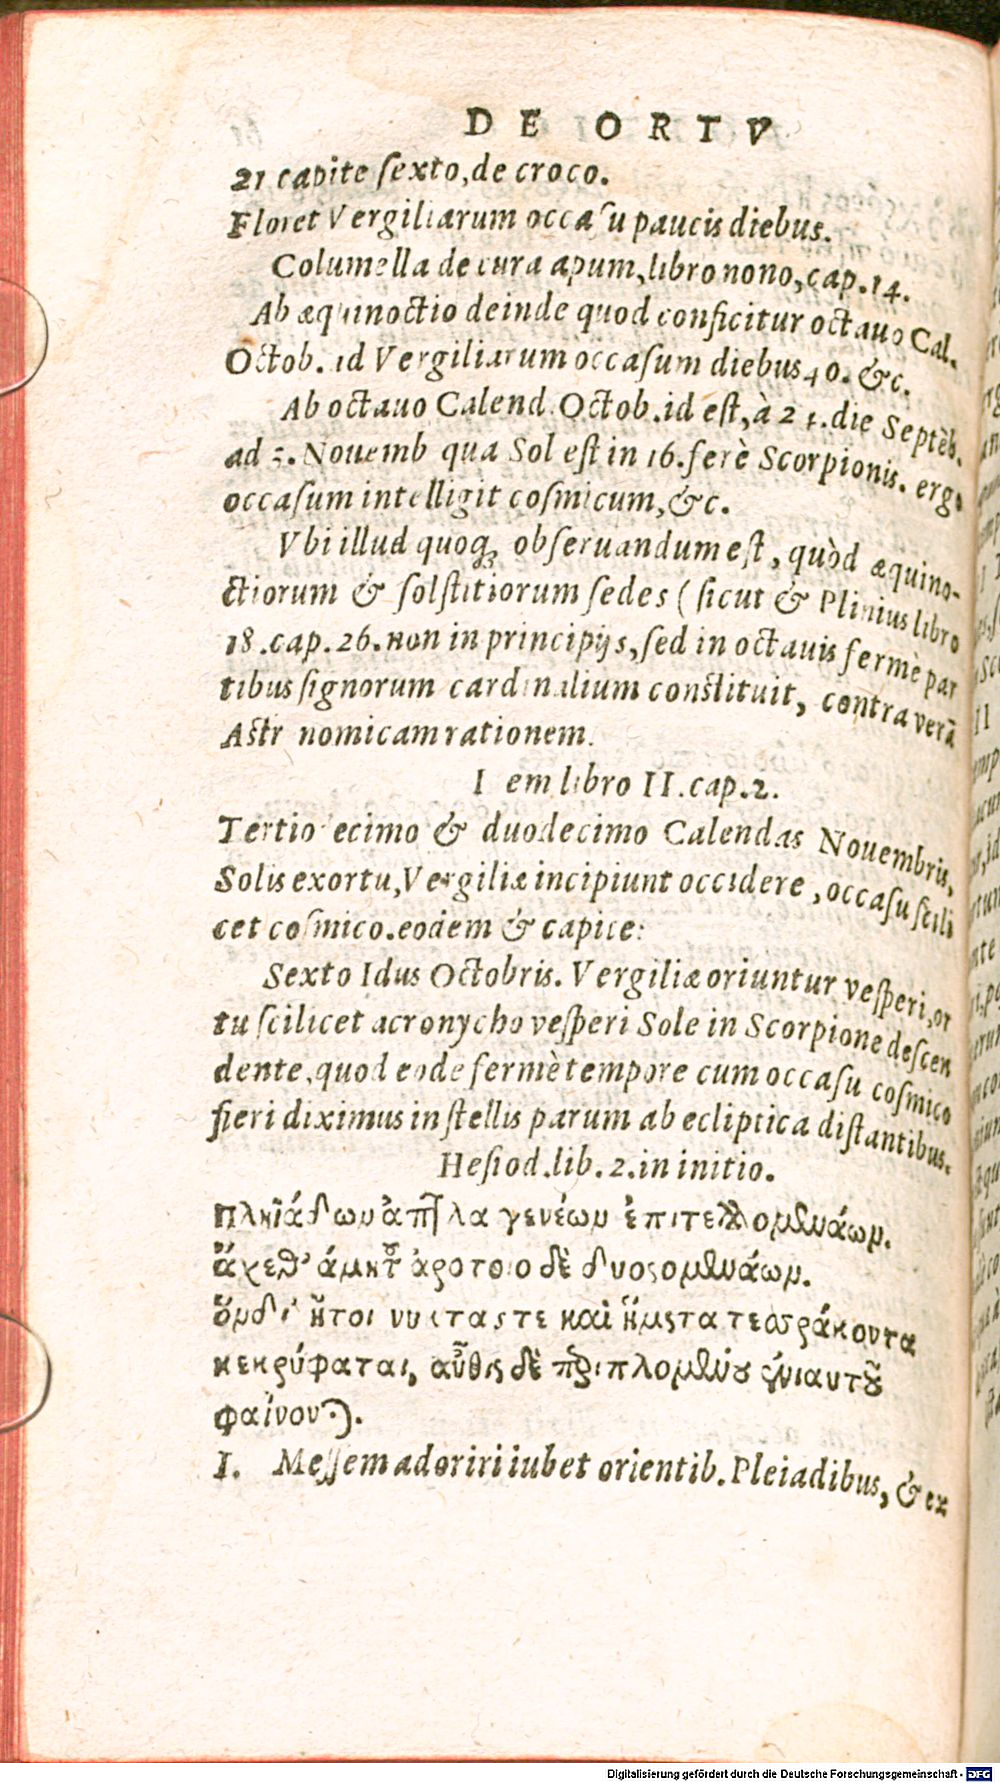 DE ORTV
21 capite sexto, de croco.
Floret Vergiliarum occasu paucis diebus.
Columella de cura apum, libro nono, cap. 14.
Ab æquinoctio deinde quod conficitur octauo Cal.
Octob. ad Vergiliarum occasum diebus 40. &c.
Ab octauo Calend. Octob. id est, à 24. die Septēb.
ad 3. Nouemb qua Sol est in 16. ferè Scorpionis. ergo
occasum intelligit cosmicum, &c.
Vbi illud quoq; obseruandum est, quòd æquino-
ctiorum & solstitiorum sedes ( sicut & Plinius libro
18. cap. 26. non in principijs, sed in octauis fermè par
tibus signorum cardinalium constituit, contra verā
Astr nomicam rationem.
I em libro II. cap. 2.
Tertio ecimo & duodecimo Calendas Nouembris,
Solis exortu, Vergiliæ incipiunt occidere, occasu scili
cet cosmico. eodem & capite:
Sexto Idus Octobris. Vergiliæ oriuntur vesperi, or
tu scilicet acronycho vesperi Sole in Scorpione descen
dente, quod eode fermè tempore cum occasu cosmico
fieri diximus in stellis parum ab ecliptica distantibus.
Hesiod. lib. 2. in initio.
Πληϊάδων ἀτλα γενέων ἐπιτελλομενάων.
ἄρχεθ' ἀμητ ἀροτοιο δὲ δυσομενάων.
ὅι δ' ἤτοι νυκτας τε καὶ ἤματα τεσσράκοντα
κεκρύφαται, αὖθις δὲ περιπλομένου ἐνιαυτοῦ
φαίνονται.
I. Messem adoriri iubet orientib. Pleiadibus, & ex
Digitalisierung gefördert durch die Deutsche Forschungsgemeinschaft - DFG